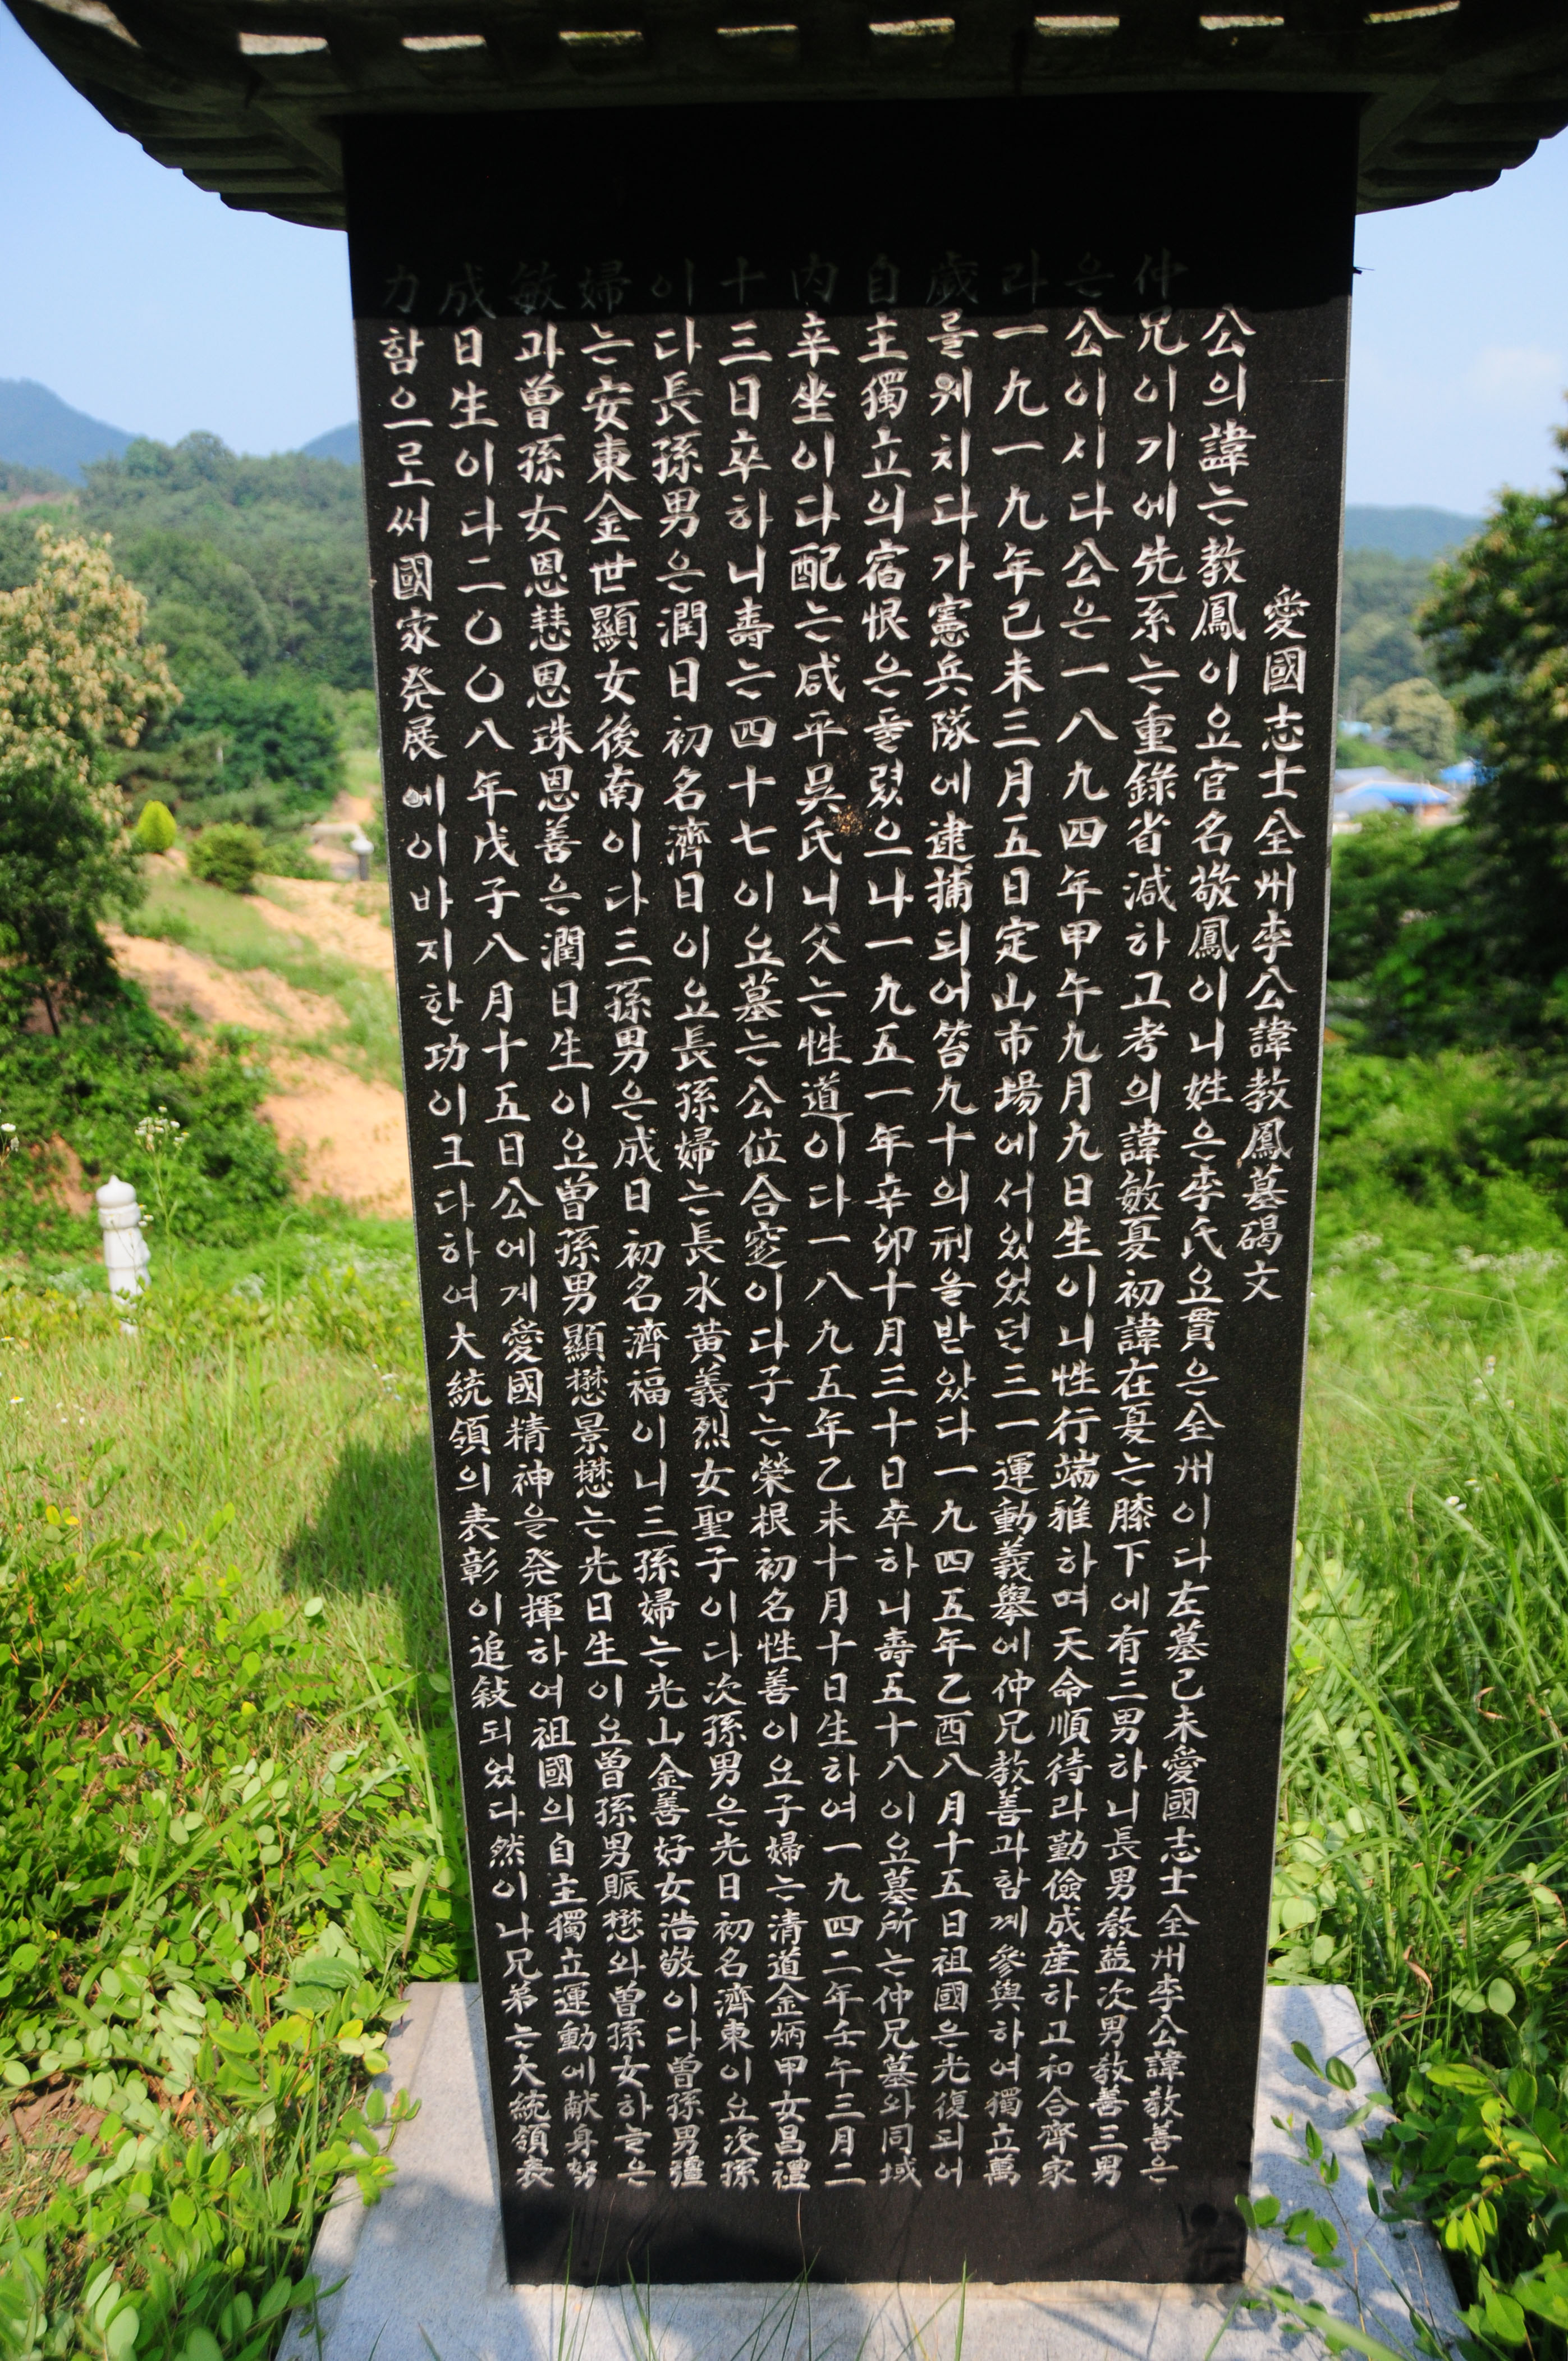 愛國志士全州李公諱教鳳墓碣文
公의諱는教鳳이요官名敬鳳이니姓은李氏요貫은全州이다左墓己未愛國志士全州李公諱教善은
仲兄이기에先系는重錄省減하고考의諱敏夏初諱在夏는膝下에有三男하니長男教益次男教善三男
은公이시다公은一八九四年甲午九月九日生이니性行端雅하며天命順待라勤儉成産하고和合齊家
라一九一九年己未三月五日定山市場에서있었던三一運動義擧에仲兄教善과함께參與하여獨立萬
歲를웨치다가憲兵隊에逮捕되어笞九十의刑을받았다一九四五年乙酉八月十五日祖國은光復되어
自主獨立의宿恨은플렸으나一九五一年辛卯十月三十日卒하니壽五十八이요墓所는仲兄墓와同域
內辛坐이다配는咸平吳氏니父는性道이다一八九五年乙未十月十日生하여一九四二年壬午三月二
十三日卒하니壽는四十七이요墓는公位合窆이다子는榮根初名性善이요子婦는清道金炳甲女昌禮
이다長孫男은潤日初名濟日이요長孫婦는長水黃義烈女聖子이다次孫男은光日初名濟東이요次孫
婦는安東金世顯女後南이다三孫男은成日初名濟福이니三孫婦는光山金善好女浩敬이다曾孫男彊
敏과曾孫女恩慧恩珠恩善은潤日生이요曾孫男顯懋景懋는光日生이요曾孫男賑懋와曾孫女하늘은
成日生이다二〇〇八年戊子八月十五日公에게愛國精神을発揮하여祖國의自主獨立運動에献身努
力함으로써國家発展에이바지한功이크다하여大統領의表彰이追敍되었다然이나兄弟는大統領表